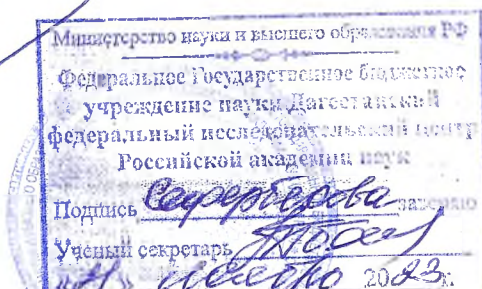 Министерство науки и высшего образования РФ
Федеральное Государственное бюджетное
учреждение науки Дагестанский
федеральный исследовательский центр
Российской академии наук
Подпись заверяю
Ученый секретарь
2023г.